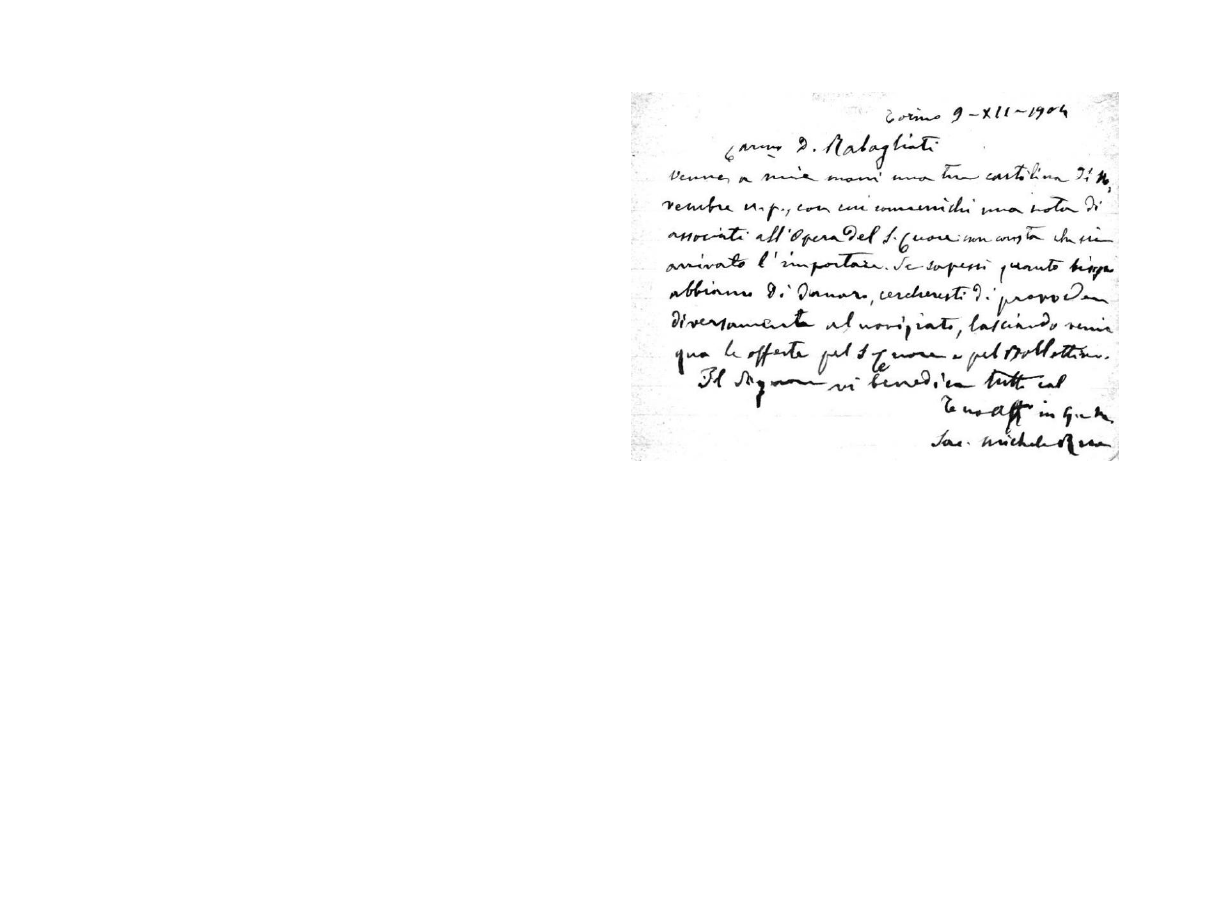 Torino 9-XII-1904
Carmo D. Rabagliati
venne a mie mani una tua cartolina di No
vembre u.p., con cui comunichi una nota di
associati all'Opera del S. Cuore non consta che sia
arrivato l'importare. Se sapessi quanto bisogno
abbiamo di danaro, cercheresti di provvedere
diversamente al noviziato, lasciando venir
qua le offerte pel S. Cuore e pel Bollettino.
Il Signore vi benedica tutti col
Tuo Aff in G. e M.
Sac. Michele Rua